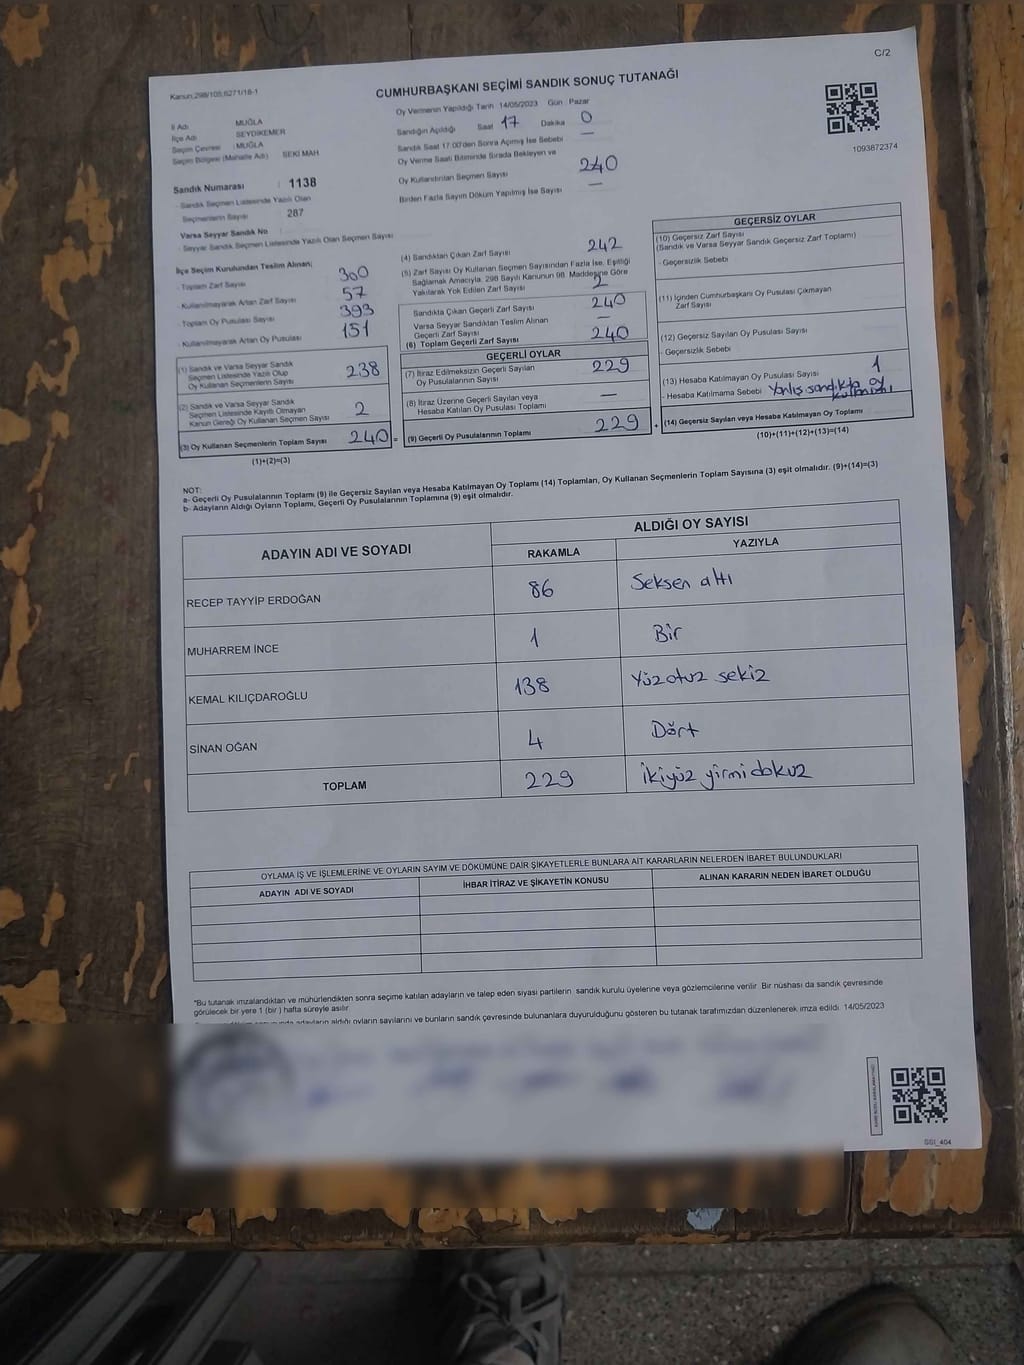 C/2
Kanun:298/105;6271/18-1
CUMHURBAŞKANI SEÇİMİ SANDIK SONUÇ TUTANAĞI
İl Adı MUĞLA
İlçe Adı SEYDİKEMER
Seçim Çevresi : MUĞLA
Seçim Bölgesi (Mahalle Adı) SEKİ MAH
Sandık Numarası : 1138
- Sandık Seçmen Listesinde Yazılı Olan
Seçmenlerin Sayısı 287
Varsa Seyyar Sandık No
- Seyyar Sandık Seçmen Listesinde Yazılı Olan Seçmen Sayısı
İlçe Seçim Kurulundan Teslim Alınan;
- Toplam Zarf Sayısı 300
- Kullanılmayarak Artan Zarf Sayısı 57
- Toplam Oy Pusulası Sayısı 393
- Kullanılmayarak Artan Oy Pusulası 151
(1) Sandık ve Varsa Seyyar Sandık
Seçmen Listesinde Yazılı Olup
Oy Kullanan Seçmenlerin Sayısı 238
(2) Sandık ve Varsa Seyyar Sandık
Seçmen Listesinde Kayıtlı Olmayan
Kanun Gereği Oy Kullanan Seçmen Sayısı 2
(3) Oy Kullanan Seçmenlerin Toplam Sayısı 240 =
(1)+(2)=(3)
Oy Vermenin Yapıldığı Tarih 14/05/2023 Gün Pazar
Sandığın Açıldığı Saat 17 Dakika 0
Sandık Saat 17:00'den Sonra Açılmış İse Sebebi —
Oy Verme Saati Bitiminde Sırada Bekleyen ve
Oy Kullandırılan Seçmen Sayısı 240
Birden Fazla Sayım Döküm Yapılmış İse Sayısı —
(4) Sandıktan Çıkan Zarf Sayısı 242
(5) Zarf Sayısı Oy Kullanan Seçmen Sayısından Fazla İse, Eşitliği
Sağlamak Amacıyla, 298 Sayılı Kanunun 98. Maddesine Göre
Yakılarak Yok Edilen Zarf Sayısı 2
Sandıkta Çıkan Geçerli Zarf Sayısı 240
Varsa Seyyar Sandıktan Teslim Alınan
Geçerli Zarf Sayısı —
(6) Toplam Geçerli Zarf Sayısı 240
GEÇERLİ OYLAR
(7) İtiraz Edilmeksizin Geçerli Sayılan
Oy Pusulalarının Sayısı 229
(8) İtiraz Üzerine Geçerli Sayılan veya
Hesaba Katılan Oy Pusulası Toplamı —
(9) Geçerli Oy Pusulalarının Toplamı 229 +
1093872374
GEÇERSİZ OYLAR
(10) Geçersiz Zarf Sayısı
(Sandık ve Varsa Seyyar Sandık Geçersiz Zarf Toplamı)
- Geçersizlik Sebebi
(11) İçinden Cumhurbaşkanı Oy Pusulası Çıkmayan
Zarf Sayısı
(12) Geçersiz Sayılan Oy Pusulası Sayısı
- Geçersizlik Sebebi
(13) Hesaba Katılmayan Oy Pusulası Sayısı 1
- Hesaba Katılmama Sebebi Yanlış sandıkta oy
(14) Geçersiz Sayılan veya Hesaba Katılmayan Oy Toplamı
(10)+(11)+(12)+(13)=(14)
NOT:
a- Geçerli Oy Pusulalarının Toplamı (9) ile Geçersiz Sayılan veya Hesaba Katılmayan Oy Toplamı (14) Toplamları, Oy Kullanan Seçmenlerin Toplam Sayısına (3) eşit olmalıdır. (9)+(14)=(3)
b- Adayların Aldığı Oyların Toplamı, Geçerli Oy Pusulalarının Toplamına (9) eşit olmalıdır.
ADAYIN ADI VE SOYADI ALDIĞI OY SAYISI
RAKAMLA YAZIYLA
RECEP TAYYİP ERDOĞAN 86 Seksen altı
MUHARREM İNCE 1 Bir
KEMAL KILIÇDAROĞLU 138 Yüzotuz sekiz
SİNAN OĞAN 4 Dört
TOPLAM 229 İkiyüz yirmidokuz
OYLAMA İŞ VE İŞLEMLERİNE VE OYLARIN SAYIM VE DÖKÜMÜNE DAİR ŞİKAYETLERLE BUNLARA AİT KARARLARIN NELERDEN İBARET BULUNDUKLARI
ADAYIN ADI VE SOYADI İHBAR İTİRAZ VE ŞİKAYETİN KONUSU ALINAN KARARIN NEDEN İBARET OLDUĞU
*Bu tutanak imzalandıktan ve mühürlendikten sonra seçime katılan adayların ve talep eden siyasi partilerin sandık kurulu üyelerine veya gözlemcilerine verilir. Bir nüshası da sandık çevresinde
görülecek bir yere 1 (bir) hafta süreyle asılır.
adayların aldığı oyların sayılarını ve bunların sandık çevresinde bulunanlara duyurulduğunu gösteren bu tutanak tarafımızdan düzenlenerek imza edildi. 14/05/2023
SSI_404